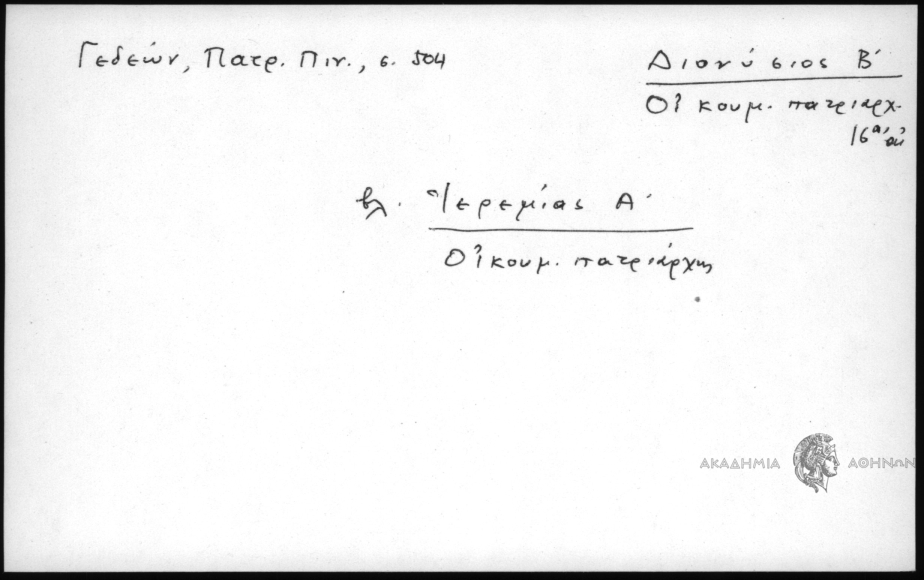 Γεδεών, Πατρ. Πιν., σ. 504
Διονύσιος Β΄
Οἰκουμ. πατριάρχ.
16ου αἰ
βλ. Ἱερεμίας Α΄
Οἰκουμ. πατριάρχης
ΑΚΑΔΗΜΙΑ ΑΘΗΝΩΝ